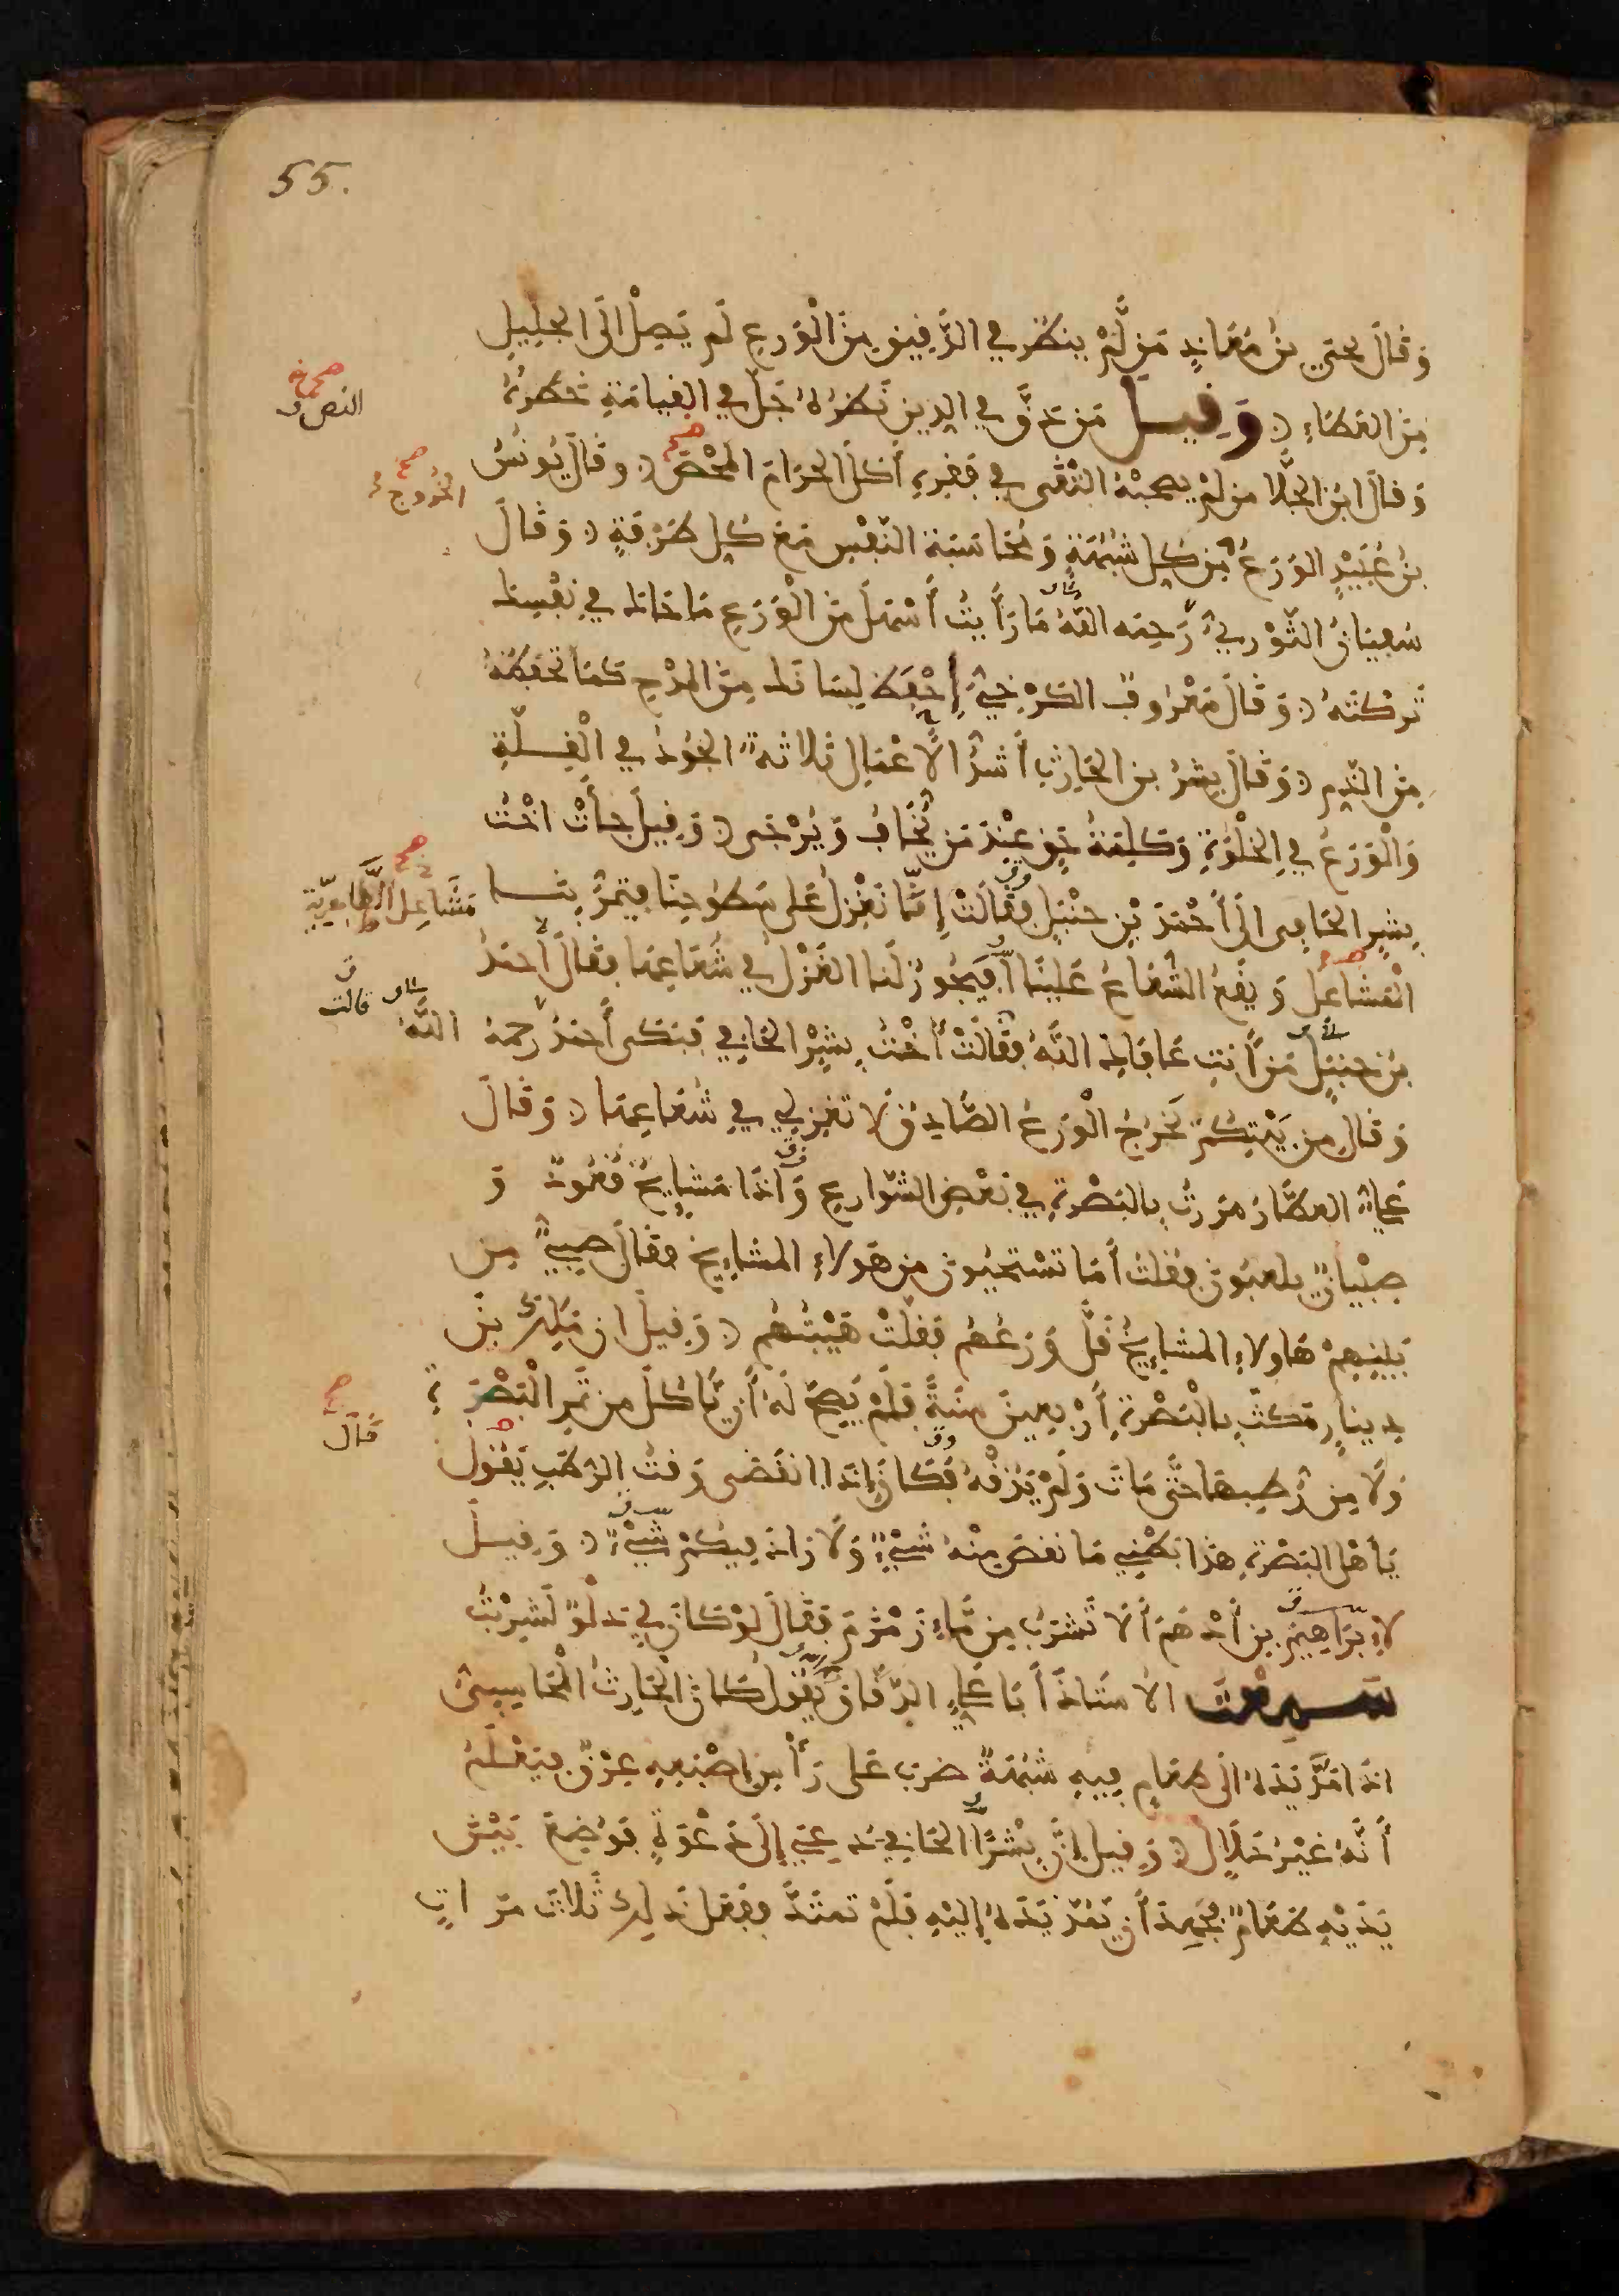 55.
وَقَالَ يحيَى بنُ مُعَاذٍ مَن لَّمْ ينظُر في الدَّقِيقِ مِنَ الْوَرعِ لَم يَصِلْ الَى الجلِيلِ
مِنَ العَطَاءِ وَقِيلَ مَن دَقَّ في الدِين نَظرُهُ جَلَّ في القِيامَةِ خَطَرُهُ
صح
النص
وَقالَ ابنُ الجَلَّا من لمْ يصحبْهُ التُّقَى في فَقرِهِ أكَلَ الحرَامَ المَحْضَ وقالَ يُونُسُ
صح
الخُرُوج
بنُ عُبَيْدٍ الوَرَعُ مِن كلِ شُبْهَةٍ وَمُحَاسَبَة النّفْسِ مَعَ كُلِ طَرْفَةٍ وَقَالَ
سُفيَانُ الثّوْرِيُّ رَحِمَه اللَّهُ مَا رَأَيتُ أَسْهَلَ مِنَ الْوَرَعِ مَا حَاكَ في نفْسِكَ
تَركتَهُ وَقَالَ مَعْرُوفٌ الكَرْخِيُّ إِحْفَظ لِسَانَكَ مِنَ المَدْحِ كَمَا تَحْفَظُهُ
مِنَ الذّمِ وَقَالَ بِشرُ بنُ الحَارِثِ أَشدُّ الأَعْمَالِ ثلَاثةٌ الجُودُ في الْقِلّةِ
وَالْوَرَعُ في الخَلْوَةِ وَكَلِمَةُ حَقٍ عِنْدَ مَن يُّخَافُ وَيُرْجَى وَقِيلَ جاءَتْ اخْتُ
بِشرٍ الحَافِى الَى أَحْمَدَ بْنِ حنْبَلٍ فَقَالَتْ إِنَّا نَغْزِلُ عَلَى سُطُوحِنَا فيَمُرُّ بِنَا
صح
مَشَاعِل الظَّاهِرِيّةِ
الْمَشَاعِلُ وَيقَعُ الشُعَاعُ عَلَينَا أَفَيَجُوزُ لَنَا الغَزْلُ في شُعَاعِهَا فقَالَ أَحمَدُ
بنُ حنبَلٍ مَن أَنتِ عَافَاكِ اللَّهُ فقَالَتْ أُخْتُ بِشْرٍ الحَافي فَبَكَى أَحمَدُ رحمهُ اللَّهُ
قالت
وَقَالَ مِن بَيْتِكُمْ يَخرُجُ الْوَرَعُ الصَّادِقُ لَا تَغزِلي في شُعَاعِهَا وَقَالَ
عَلِيٌّ العطَّارُ مَرَرتُ بِالبَصْرَةِ في بَعْضِ الشّوارِعِ وَإذَا مَشايِخُ قُعُودٌ وَ
صِبْيَانٌ يلعَبُونَ فقُلتُ أَمَا تَسْتَحيُونَ مِن هَولاءِ المشَايِخِ فقالَ صبِيٌّ مِن
بَينِهِمْ هَاولاءِ المشَايخُ قَلَّ وَرَعُهُم فَقَلَّتْ هَيْبَتُهُم وَقِيلَ ان مَلِكَ بنَ
دِينَارٍ مَكثَ بِالْبَصْرةِ أَرْبعِينَ سَنَةً فَلَمْ يَصِحَّ لَهُ أَن يَّاكُلَ من تَمرِ الْبَصْرَةِ
وَلَا مِن رُطبِهَا حَتّى مَاتَ وَلَمْ يَذُقْهُ فَكَانَ إِذَا انقَضَى وَقتُ الرُطَبِ يَقُولُ
صح
قَالَ
يَأَهْلَ البَصْرَةِ هذَا بَطْنِي مَا نَقصَ مِنْهُ شَيْءٌ وَلَا زَادَ فِيكُمْ شَيْءٌ وَقِيلَ
لإِبرَاهِيمَ بنِ أَدْهَم أَلَا تَشرَبُ مِن مَّاءِ زَمْزَمَ فقَالَ لَوْ كَانَ لي دَلْوٌ لَشرِبْتُ
سَمِعْتُ الاسْتَاذَ أَبَا عَلِيٍ الدَّقَّاقَ يَقُولُ كَانَ الْحَارِثُ الْمُحَاسِبىُّ
اذَا مَدَّ يَدَهُ الَى طَعَامٍ فِيهِ شُبْهَةٌ ضَرب عَلَى رَأْسِ إصْبَعِهِ عِرْقٌ فيَعْلَمُ
أَنَّهُ غَيْرُ حَلَالٍ وَقِيلَ إنَّ بِشْرًا الحَافي دُعِيَ إلَى دَعْوَةٍ فَوُضِعَ بَيْنَ
يَدَيْهِ طَعَامٌ فجَهِدَ أَن يَّمُدَّ يَدَهُ إلَيْهِ فَلَمْ تَمْتَدَّ ففَعَلَ ذَلِكَ ثَلَاثَ مَرّاتٍ